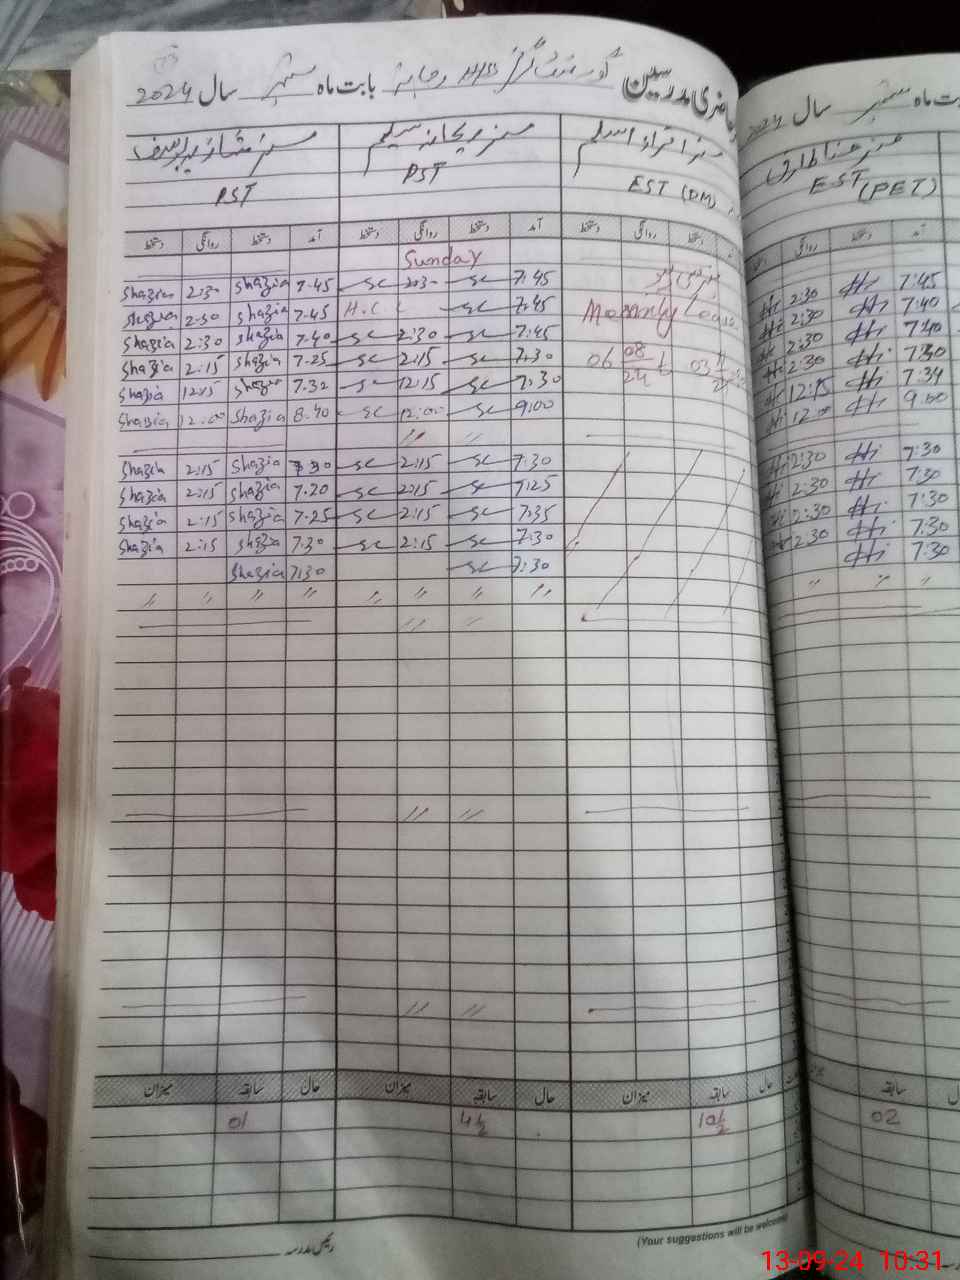 حاضری مدرسین گورنمنٹ گرلز HSS بابت ماہ ستمبر سال 2024
بابت ماہ ستمبر سال 2024
مسز اقراء اسلم مسز ریحانہ سلیم مسز شازیہ یوسف
EST (DM) PST PST
مسز حنا طارق
EST (PET)
آمد دستخط روانگی دستخط آمد دستخط روانگی دستخط دستخط روانگی دستخط
Sunday
Shazia 2:30 Shazia 7.45 SC 2:30 SC 7.45
Shazia 2:30 Shazia 7.45 H.C.L SC 7.45
Shazia 2:30 Shazia 7.40 SC 2:30 SC 7.45
Shazia 2:15 Shazia 7.25 SC 2:15 SC 7.30
Shazia 12:15 Shazia 7.32 SC 12:15 SC 7.30
Shazia 12:00 Shazia 8.40 SC 12:00 SC 9:00
" "
Shazia 2:15 Shazia 7.30 SC 2:15 SC 7.30
Shazia 2:15 Shazia 7.20 SC 2:15 SC 7.25
Shazia 2:15 Shazia 7.25 SC 2:15 SC 7.35
Shazia 2:15 Shazia 7.30 SC 2:15 SC 7.30
Shazia 7:30 SC 7:30
" " " " " " " "
" "
" "
" "
دستخط روانگی دستخط آمد
Hi 2:30 Hi 7:45
Hi 2:30 Hi 7:40
Hi 2:30 Hi 7:40
Hi 2:30 Hi 7:30
Hi 12:15 Hi 7:34
Hi 12:00 Hi 9:00
Hi 2:30 Hi 7:30
Hi 2:30 Hi 7:30
Hi 2:30 Hi 7:30
Hi 2:30 Hi 7:30
Hi 7:30
" " "
حال سابقہ میزان حال سابقہ میزان حال سابقہ میزان
10½ 4½ 01
سابقہ میزان
02
رئیس مدرسہ
(Your suggestions will be welcome)
13-09-24 10:31